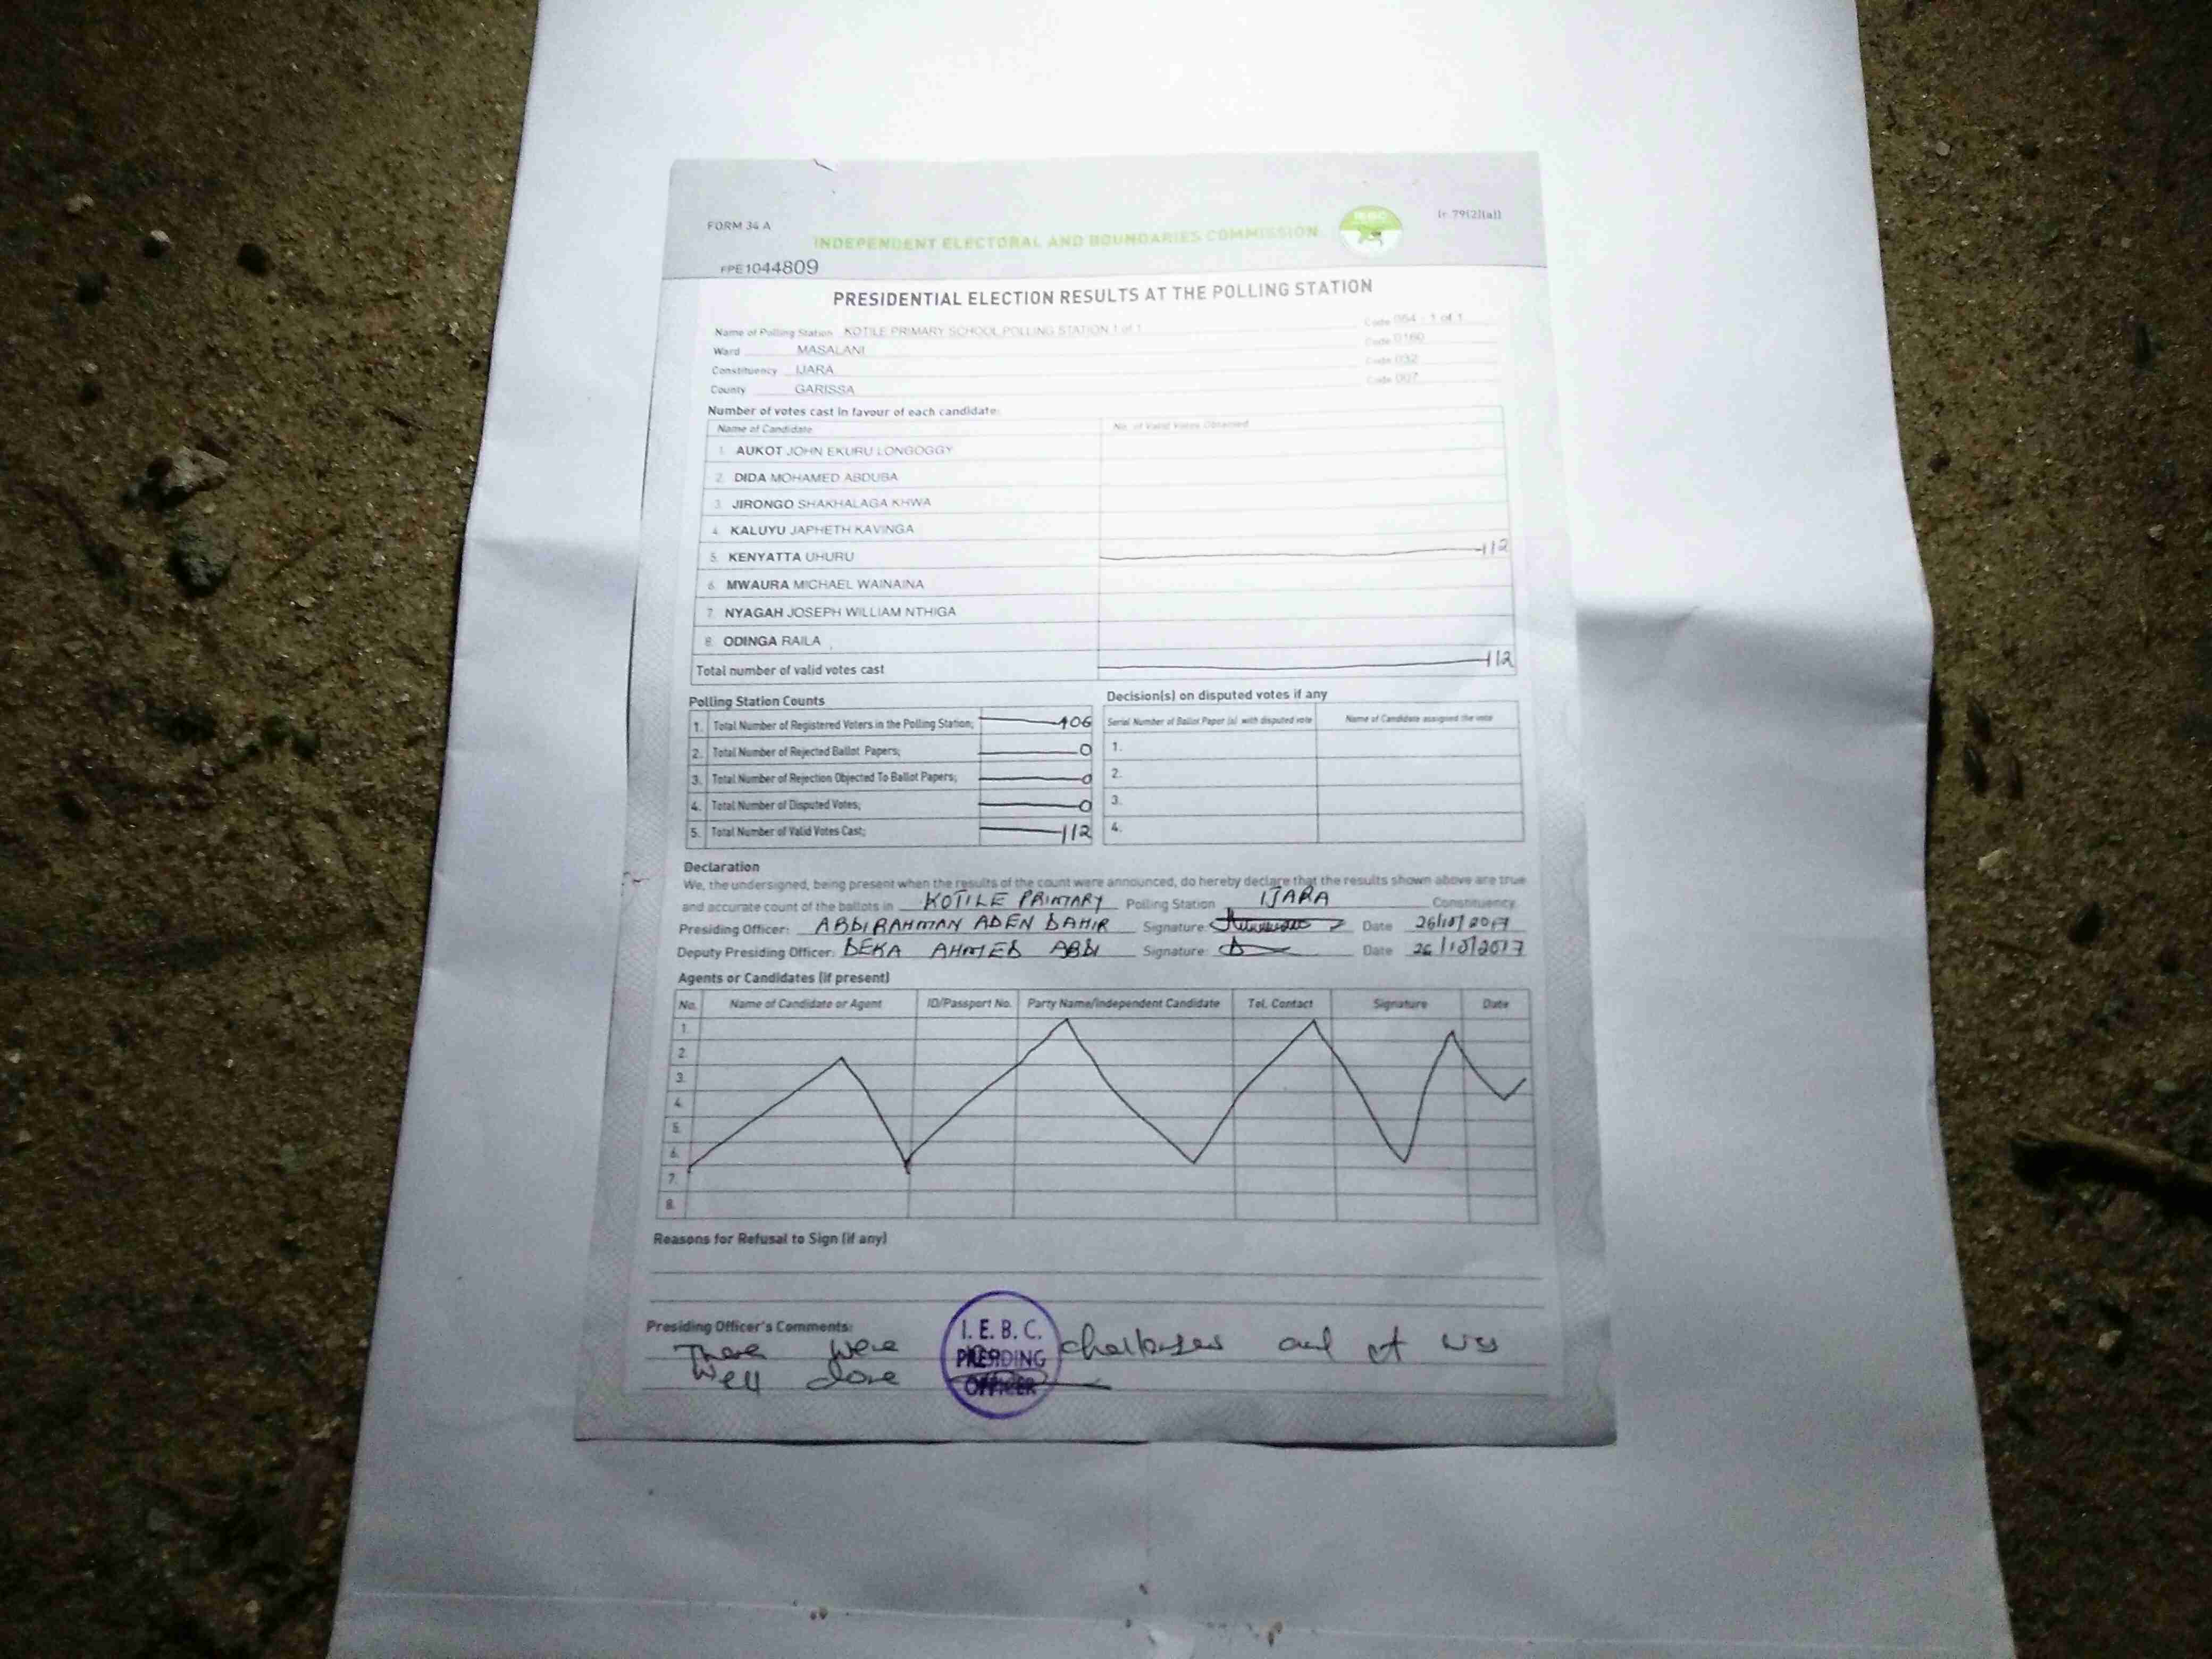 FORM 34 A
(r. 79(2)(a))
INDEPENDENT ELECTORAL AND BOUNDARIES COMMISSION
IEBC
FPE1044809
PRESIDENTIAL ELECTION RESULTS AT THE POLLING STATION
Name of Polling Station KOTILE PRIMARY SCHOOL POLLING STATION 1 of 1 Code 054 - 1 of 1
Ward MASALANI Code 0160
Constituency IJARA Code 032
County GARISSA Code 007
Number of votes cast in favour of each candidate:
Name of Candidate No. of Valid Votes Obtained
1. AUKOT JOHN EKURU LONGOGGY
2. DIDA MOHAMED ABDUBA
3. JIRONGO SHAKHALAGA KHWA
4. KALUYU JAPHETH KAVINGA
5. KENYATTA UHURU 112
6. MWAURA MICHAEL WAINAINA
7. NYAGAH JOSEPH WILLIAM NTHIGA
8. ODINGA RAILA
Total number of valid votes cast 112
Polling Station Counts
1. Total Number of Registered Voters in the Polling Station; 406
2. Total Number of Rejected Ballot Papers; 0
3. Total Number of Rejection Objected To Ballot Papers; 0
4. Total Number of Disputed Votes; 0
5. Total Number of Valid Votes Cast; 112
Decision(s) on disputed votes if any
Serial Number of Ballot Paper (s) with disputed vote Name of Candidate assigned the vote
1.
2.
3.
4.
Declaration
We, the undersigned, being present when the results of the count were announced, do hereby declare that the results shown above are true
and accurate count of the ballots in KOTILE PRIMARY Polling Station IJARA Constituency
Presiding Officer: ABDIRAHMAN ADEN DAHIR Signature: Date 26/10/2017
Deputy Presiding Officer: DEKA AHMED ABDI Signature: Date 26/10/2017
Agents or Candidates (if present)
No. Name of Candidate or Agent ID/Passport No. Party Name/Independent Candidate Tel. Contact Signature Date
1.
2.
3.
4.
5.
6.
7.
8.
Reasons for Refusal to Sign (if any)
Presiding Officer's Comments:
There were challenges and it was
well done
I. E. B. C.
PRESIDING
OFFICER